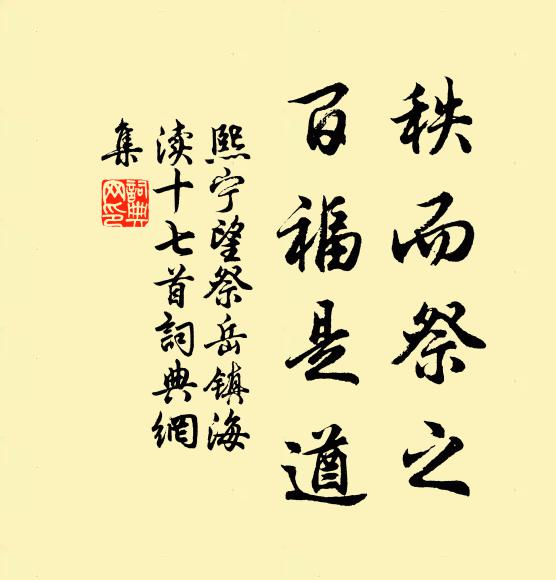 秩而祭之
百福是遒
熙宁望祭岳鎮海
渎十七首詞典網
集
詞典
网印